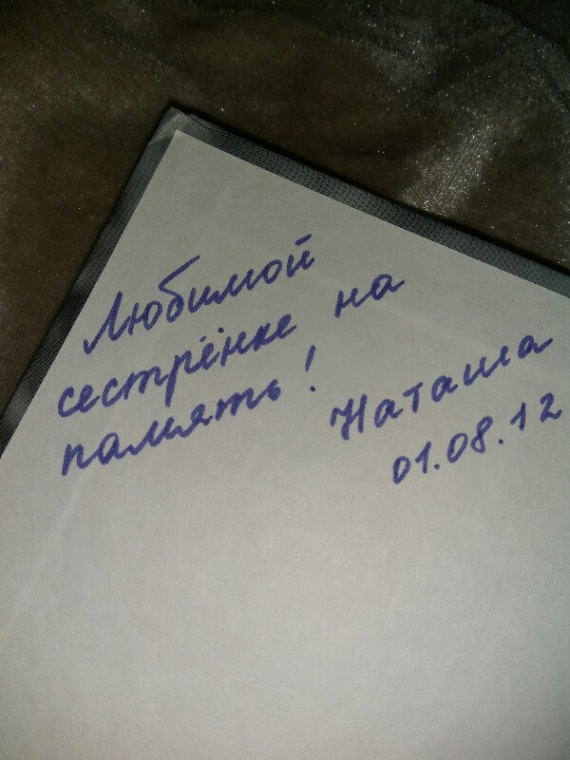 Любимой
сестрёнке на
память!
Наташа
01.08.12